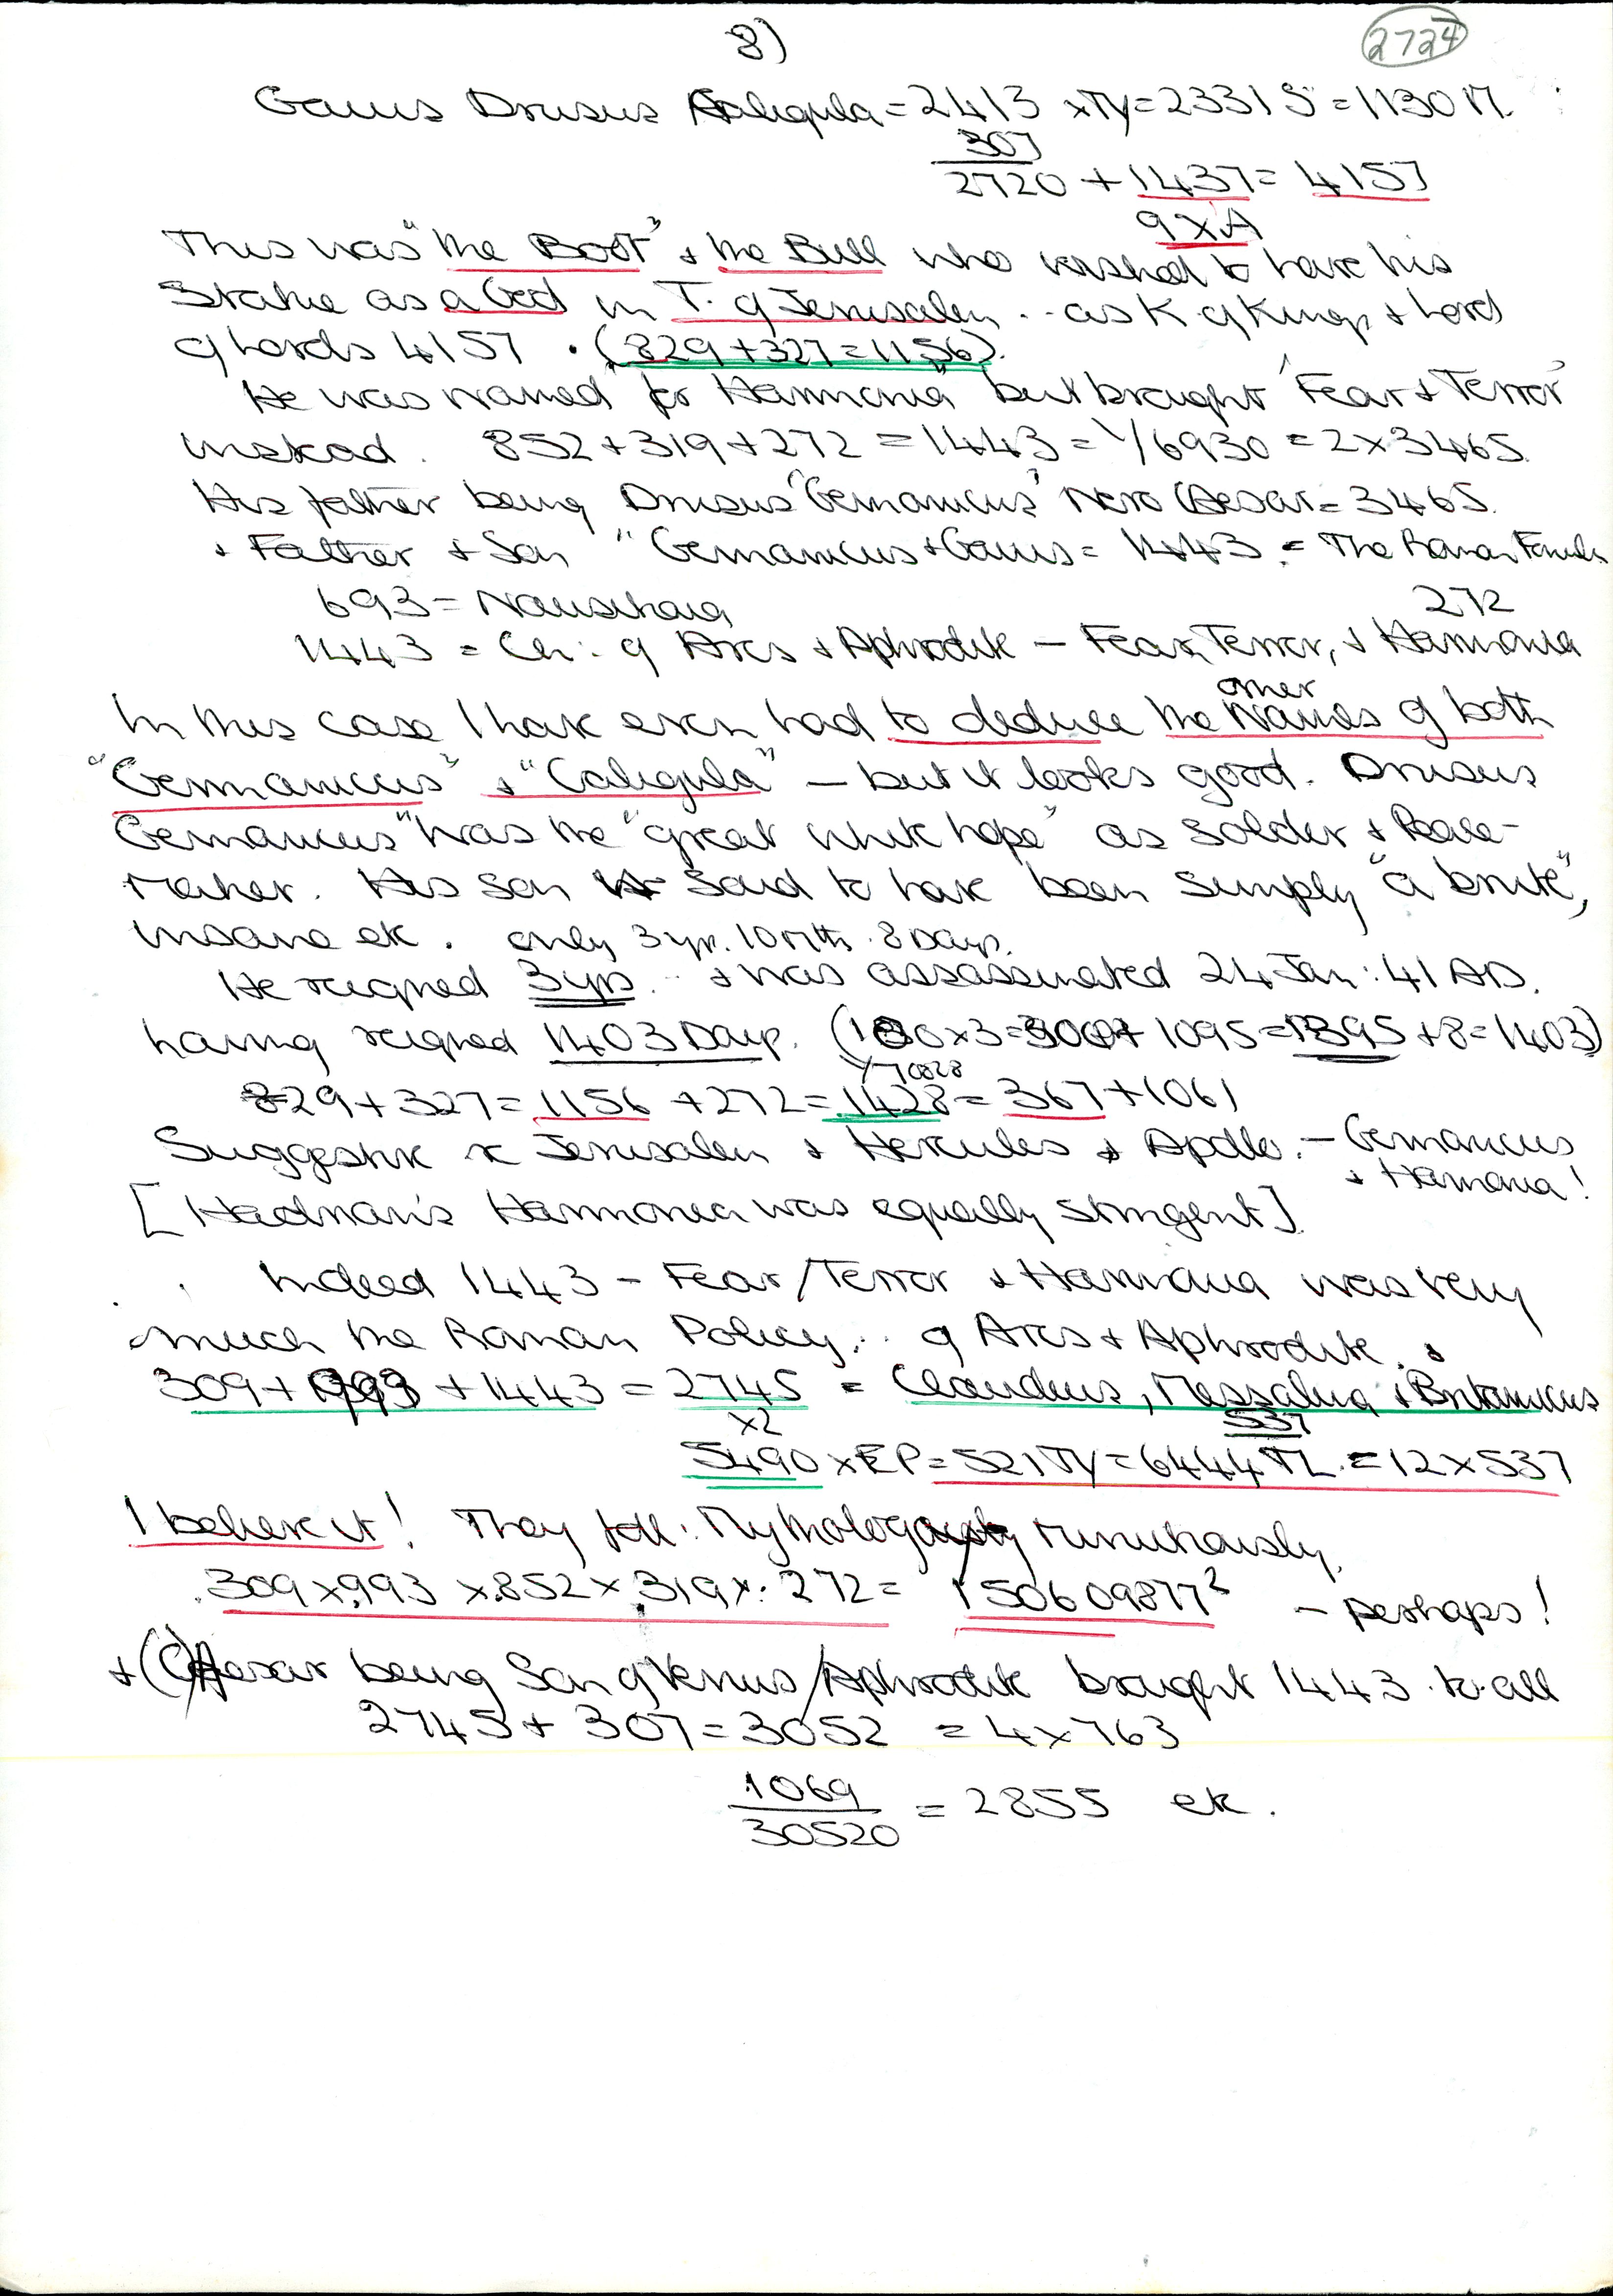 8)
2724
Gaius Drusus Caligula = 2413 x TY = 2331 S = 1130 M.
307
2720 + 1437 = 4157
9 x A
This was "the Boot" & the Bull who wished to have his
Statue as a God in T. of Jerusalem .. as K of Kings & Lord
of Lords 4157 . (829 + 327 = 1156).
He was named "for Harmonia" but brought 'Fear & Terror'
instead. 852 + 319 + 272 = 1443 = 1/6930 = 2 x 3465.
His father being Drusus "Germanicus" Nero Caesar = 3465.
& Father & Son "Germanicus & Gaius = 1443 = The Roman Family
693 = Nausithoia
272
1443 = Ch: of Ares & Aphrodite - Fear, Terror, & Harmonia
other
In this case I have even had to deduce the Names of both
"Germanicus" & "Caligula" - but it looks good. Drusus
Germanicus" was the "great white hope" as Soldier & Peace-
maker. His Son is said to have been simply "a brute",
insane etc. only 3 yrs. 10 Mths. 8 Days.
He reigned 3 yrs. .. & was assassinated 24 Jan: 41 AD.
having reigned 1403 Days. (100 x 3 = 300 + 1095 = 1395 + 8 = 1403)
1/70028
829 + 327 = 1156 + 272 = 1428 = 367 + 1061
Suggestive x Jerusalem & Hercules & Apollo. - Germanicus
& Harmonia!
[Hadrian's Harmonia was equally stringent].
Indeed 1443 - Fear/Terror & Harmonia was very
much the Roman Policy .. of Ares & Aphrodite. &
309 + 993 + 1443 = 2745 = Claudius, Messalina & Britannicus
x2
537
5490 x EP = 521 TY = 6444 TL = 12 x 537
I believe it! They foll: Mythology minutiously.
309 x 993 x 852 x 319 x 272 = 150609877² - perhaps!
& (C)Aesar being Son of Venus/Aphrodite brought 1443 to all
2745 + 307 = 3052 = 4 x 763
1069
30520
= 2855 etc.